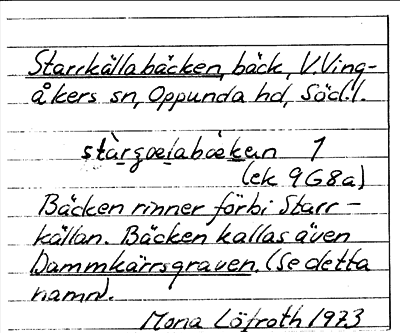 Starrkällabäcken, bäck, V.Ving-
åkers sn, Oppunda hd, Södl.
stàrgælabækan 1
(ek 9G8a)
Bäcken rinner förbi Starr-
källan. Bäcken kallas även
Dammkärrsgraven. (Se detta
namn).
Mona Löfroth 1973